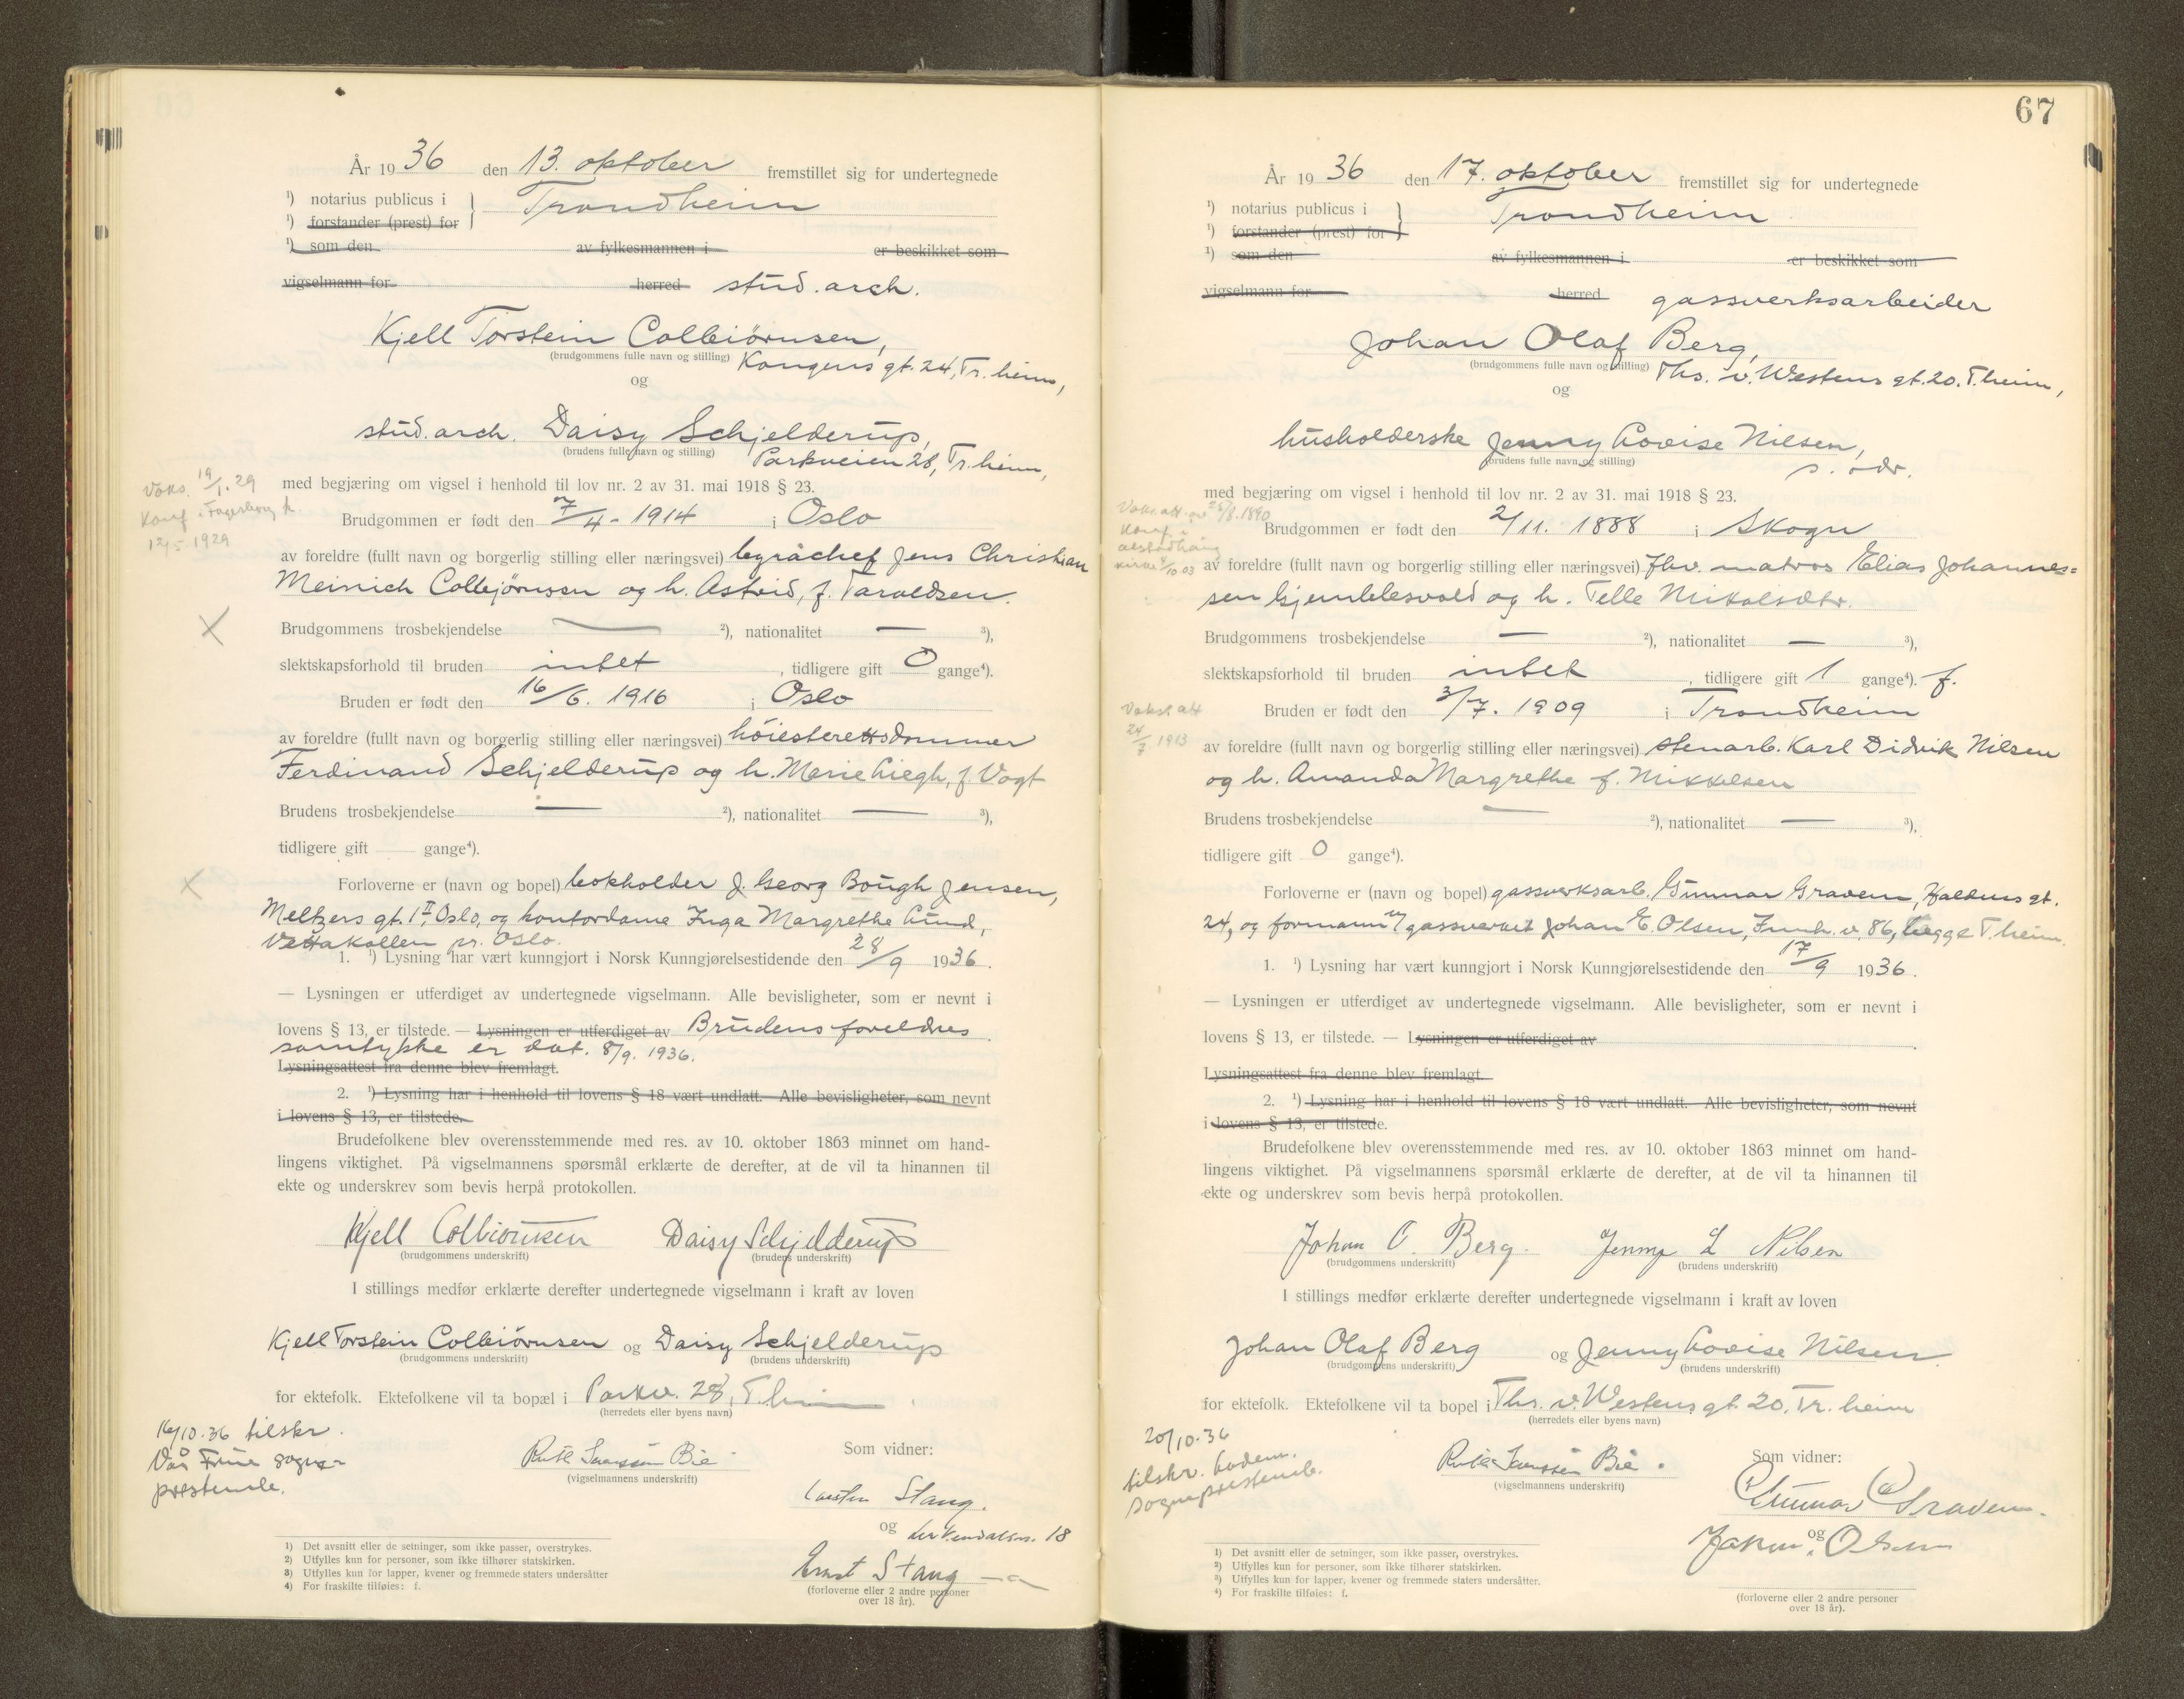 År 1936 den 13. oktober fremstillet sig for undertegnede
¹) notarius publicus i } Trondheim
¹) forstander (prest) for
¹) som den av fylkesmannen i er beskikket som
vigselmann for herred stud. arch.
Kjell Torstein Colbiörnsen,
(brudgommens fulle navn og stilling) Kongens gt. 24, Tr.heim,
og
stud. arch. Daisy Schjelderup,
(brudens fulle navn og stilling) Parkveien 28, Tr.heim,
Vaks. 19/1. 29
Konf. i Fagerborg k.
12/5. 1929
med begjæring om vigsel i henhold til lov nr. 2 av 31. mai 1918 § 23.
Brudgommen er født den 7/4 - 1914 i Oslo
av foreldre (fullt navn og borgerlig stilling eller næringsvei) byråchef Jens Christian
Meinich Colbjörnsen og h. Astrid, f. Taraldsen.
X
Brudgommens trosbekjendelse — ²), nationalitet — ³),
slektskapsforhold til bruden intet, tidligere gift 0 gange⁴).
Bruden er født den 16/6. 1916 i Oslo
av foreldre (fullt navn og borgerlig stilling eller næringsvei) höiesterettsdommer
Ferdinand Schjelderup og h. Marie Liegh, f. Vogt
Brudens trosbekjendelse — ²), nationalitet — ³),
tidligere gift gange⁴).
X
Forloverne er (navn og bopel) bokholder J. Georg Bough Jensen,
Meltzers gt. 1 II, Oslo, og kontordame Inga Margrethe Lund,
Vettakollen pr. Oslo.
1. ¹) Lysning har vært kunngjort i Norsk Kunngjørelsestidende den 28/9 1936.
— Lysningen er utferdiget av undertegnede vigselmann. Alle bevisligheter, som er nevnt i
lovens § 13, er tilstede. — Lysningen er utferdiget av Brudens foreldres
samtykke er dat. 8/9. 1936.
Lysningsattest fra denne blev fremlagt.
2. ¹) Lysning har i henhold til lovens § 18 vært undlatt. Alle bevisligheter, som nevnt
i lovens § 13, er tilstede.
Brudefolkene blev overensstemmende med res. av 10. oktober 1863 minnet om hand-
lingens viktighet. På vigselmannens spørsmål erklærte de derefter, at de vil ta hinannen til
ekte og underskrev som bevis herpå protokollen.
Kjell Colbiörnsen Daisy Schjelderup
(brudgommens underskrift) (brudens underskrift)
I stillings medfør erklærte derefter undertegnede vigselmann i kraft av loven
Kjell Torstein Colbiörnsen og Daisy Schjelderup
(brudgommens underskrift) (brudens underskrift)
for ektefolk. Ektefolkene vil ta bopæl i Parkv. 28, T.heim
(herredets eller byens navn)
16/10.36 tilskr.
Vår Frue sogne-
prestembe.
Ruth Bie
(vigselmannens underskrift)
Som vidner:
Carsten Stang.
og 18
Ernst Stang
(forloverne eller 2 andre personer
over 18 år).
1) Det avsnitt eller de setninger, som ikke passer, overstrykes.
2) Utfylles kun for personer, som ikke tilhører statskirken.
3) Utfylles kun for lapper, kvener og fremmede staters undersåtter
4) For fraskilte tilføies: f.
67
År 1936 den 17. oktober fremstillet sig for undertegnede
¹) notarius publicus i } Trondheim
¹) forstander (prest) for
¹) som den av fylkesmannen i er beskikket som
vigselmann for herred gassverksarbeider
Johan Olaf Berg,
(brudgommens fulle navn og stilling) Ths. v. Westens gt. 20. T.heim,
og
husholderske Jenny Lovise Nilsen,
(brudens fulle navn og stilling) s. adr.
med begjæring om vigsel i henhold til lov nr. 2 av 31. mai 1918 § 23.
Brudgommen er født den 2/11. 1888 i Skogn
av foreldre (fullt navn og borgerlig stilling eller næringsvei) fhv. matros Elias Johannes=
sen og h. Telle Nikolsdtr.
Brudgommens trosbekjendelse — ²), nationalitet — ³),
slektskapsforhold til bruden intet, tidligere gift 1 gange⁴). f.
Bruden er født den 3/7. 1909 i Trondheim
Vaks. att
24/7 1913
av foreldre (fullt navn og borgerlig stilling eller næringsvei) stenarb. Karl Didrik Nilsen
og h. Amanda Margrethe f. Mikkelsen
Brudens trosbekjendelse — ²), nationalitet — ³),
tidligere gift 0 gange⁴).
Forloverne er (navn og bopel) gassverksarb. Gunnar Gravem, Haldens gt.
24, og formann v/ gassverket Johan E. Olsen, Innh. v. 86, begge T.heim.
1. ¹) Lysning har vært kunngjort i Norsk Kunngjørelsestidende den 17/9 1936.
— Lysningen er utferdiget av undertegnede vigselmann. Alle bevisligheter, som er nevnt i
lovens § 13, er tilstede. — Lysningen er utferdiget av
Lysningsattest fra denne blev fremlagt.
2. ¹) Lysning har i henhold til lovens § 18 vært undlatt. Alle bevisligheter, som nevnt
i lovens § 13, er tilstede.
Brudefolkene blev overensstemmende med res. av 10. oktober 1863 minnet om hand-
lingens viktighet. På vigselmannens spørsmål erklærte de derefter, at de vil ta hinannen til
ekte og underskrev som bevis herpå protokollen.
Johan O. Berg. Jenny L Nilsen
(brudgommens underskrift) (brudens underskrift)
I stillings medfør erklærte derefter undertegnede vigselmann i kraft av loven
Johan Olaf Berg og Jenny Lovise Nilsen
(brudgommens underskrift) (brudens underskrift)
for ektefolk. Ektefolkene vil ta bopel i Ths. v. Westens gt. 20. Tr.heim
(herredets eller byens navn)
20/10.36
tilskr. Ladem.
sogneprestembe.
Ruth Bie.
(vigselmannens underskrift)
Som vidner:
Gunnar Gravem.
og
Johan. Olsen
(forloverne eller 2 andre personer
over 18 år).
1) Det avsnitt eller de setninger, som ikke passer, overstrykes.
2) Utfylles kun for personer, som ikke tilhører statskirken.
3) Utfylles kun for lapper, kvener og fremmede staters undersåtter.
4) For fraskilte tilføies: f.